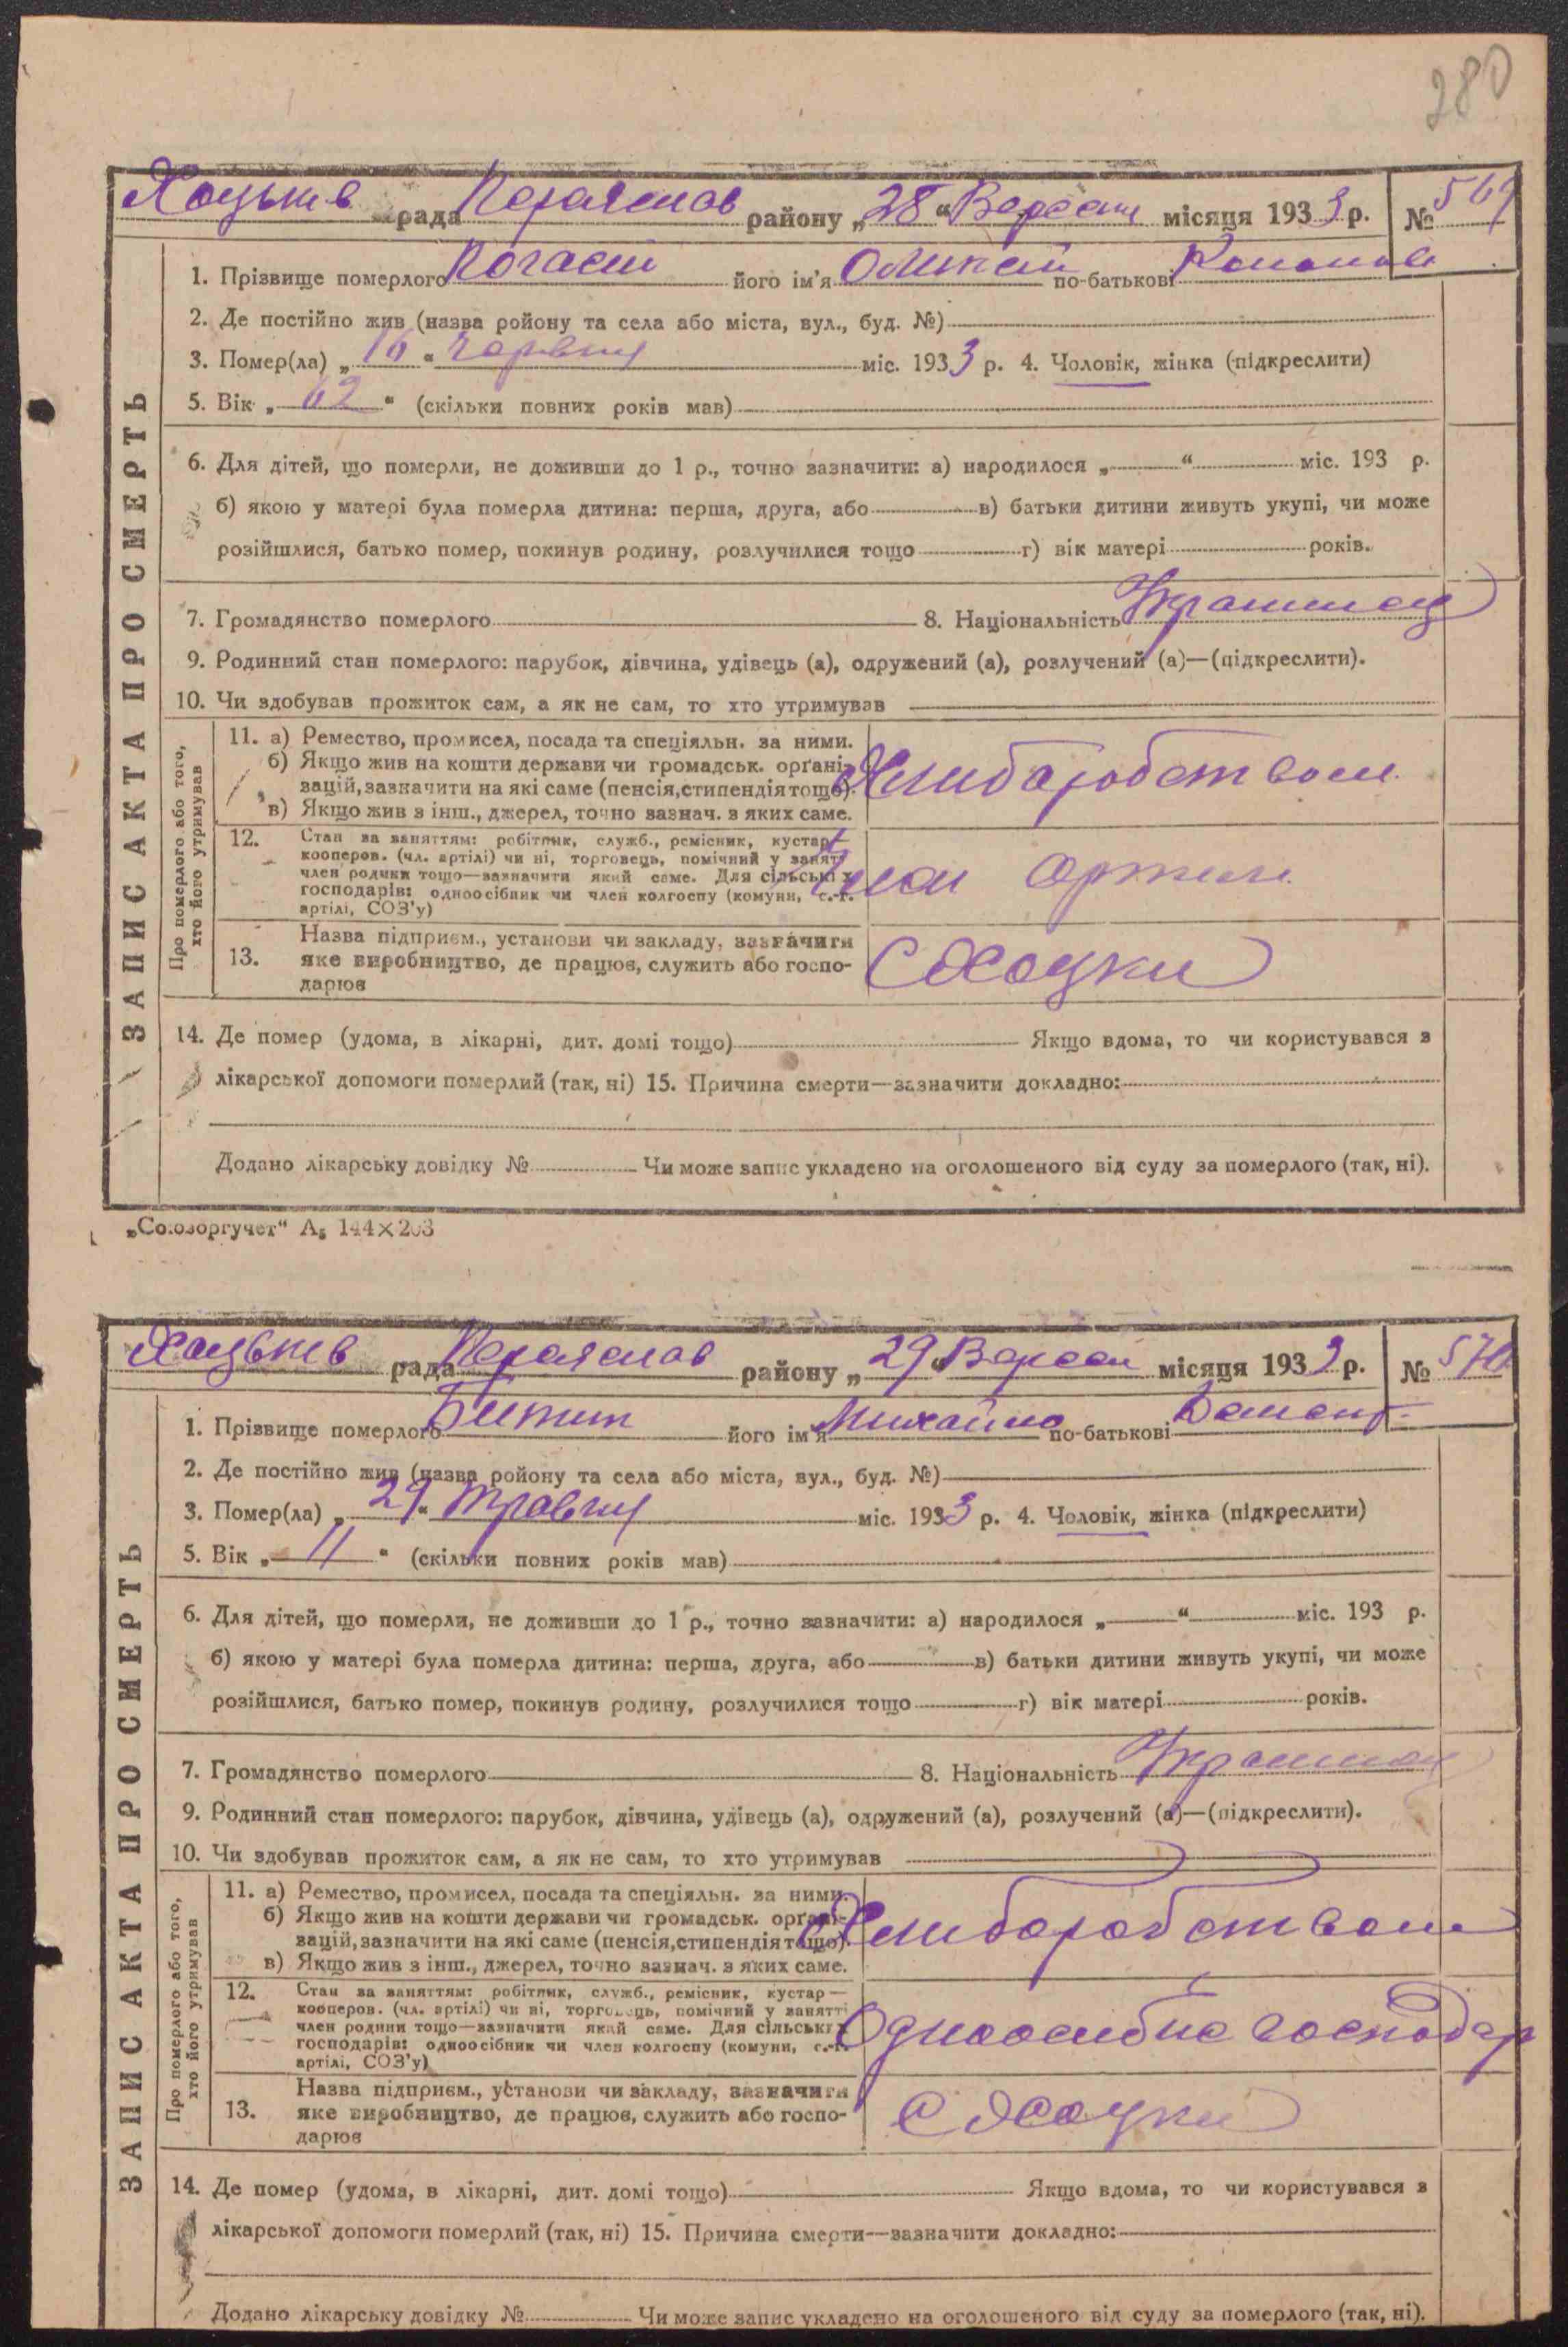 280
Хоцьків рада Переяслав району „28“ Вересня місяця 1933 р. № 569
1. Прізвище померлого його ім'я Олексій по-батькові
2. Де постійно жив (назва ройону та села або міста, вул., буд. №)
3. Помер(ла) „16“ Червня міс. 1933 р. 4. Чоловік, жінка (підкреслити)
5. Вік „62“ (скільки повних років мав)
6. Для дітей, що померли, не доживши до 1 р., точно зазначити: а) народилося „ “ міс. 193 р.
б) якою у матері була померла дитина: перша, друга, або в) батьки дитини живуть укупі, чи може
розійшлися, батько помер, покинув родину, розлучилися тощо г) вік матері років.
7. Громадянство померлого 8. Національність Українец
9. Родинний стан померлого: парубок, дівчина, удівець (а), одружений (а), розлучений (а)—(підкреслити).
10. Чи здобував прожиток сам, а як не сам, то хто утримував
ЗАПИС АКТА ПРО СМЕРТЬ
Про померлого або того, хто його утримував
11. а) Ремество, промисел, посада та спеціяльн. за ними.
б) Якщо жив на кошти держави чи громадськ. орґані-
зацій, зазначити на які саме (пенсія, стипендія тощо).
в) Якщо жив з інш., джерел, точно зазнач. з яких саме.
Хлибаробством
12. Стан за заняттям: робітник, служб., ремісник, кустар—
кооперов. (чл. артілі) чи ні, торговець, помічний у занятті
член родини тощо—зазначити який саме. Для сільських
господарів: одноосібник чи член колгоспу (комуни, с.-г.
артілі, СОЗ'у)
Член Артили
13. Назва підприєм., установи чи закладу, зазначити
яке виробництво, де працює, служить або госпо-
дарює
С Хоцки
14. Де помер (удома, в лікарні, дит. домі тощо) Якщо вдома, то чи користувався з
лікарської допомоги померлий (так, ні) 15. Причина смерти—зазначити докладно:
Додано лікарську довідку № Чи може запис укладено на оголошеного від суду за померлого (так, ні).
„Союзоргучет“ А5 144×203
Хоцьків рада Переяслав району „29“ Вересн місяця 1933 р. № 570
1. Прізвище померлого його ім'я Михайло по-батькові
2. Де постійно жив (назва ройону та села або міста, вул., буд. №)
3. Помер(ла) „29“ травня міс. 1933 р. 4. Чоловік, жінка (підкреслити)
5. Вік „11“ (скільки повних років мав)
6. Для дітей, що померли, не доживши до 1 р., точно зазначити: а) народилося „ “ міс. 193 р.
б) якою у матері була померла дитина: перша, друга, або в) батьки дитини живуть укупі, чи може
розійшлися, батько помер, покинув родину, розлучилися тощо г) вік матері років.
7. Громадянство померлого 8. Національність Українец
9. Родинний стан померлого: парубок, дівчина, удівець (а), одружений (а), розлучений (а)—(підкреслити).
10. Чи здобував прожиток сам, а як не сам, то хто утримував
ЗАПИС АКТА ПРО СМЕРТЬ
Про померлого або того, хто його утримував
11. а) Ремество, промисел, посада та спеціяльн. за ними.
б) Якщо жив на кошти держави чи громадськ. орґані-
зацій, зазначити на які саме (пенсія, стипендія тощо).
в) Якщо жив з інш., джерел, точно зазнач. з яких саме.
Хлибаробством
12. Стан за заняттям: робітник, служб., ремісник, кустар—
кооперов. (чл. артілі) чи ні, торговець, помічний у занятті
член родини тощо—зазначити який саме. Для сільських
господарів: одноосібник чи член колгоспу (комуни, с.-г.
артілі, СОЗ'у)
Одноосибне господар
13. Назва підприєм., установи чи закладу, зазначити
яке виробництво, де працює, служить або госпо-
дарює
С Хоцки
14. Де помер (удома, в лікарні, дит. домі тощо) Якщо вдома, то чи користувався з
лікарської допомоги померлий (так, ні) 15. Причина смерти—зазначити докладно:
Додано лікарську довідку № Чи може запис укладено на оголошеного від суду за померлого (так, ні).